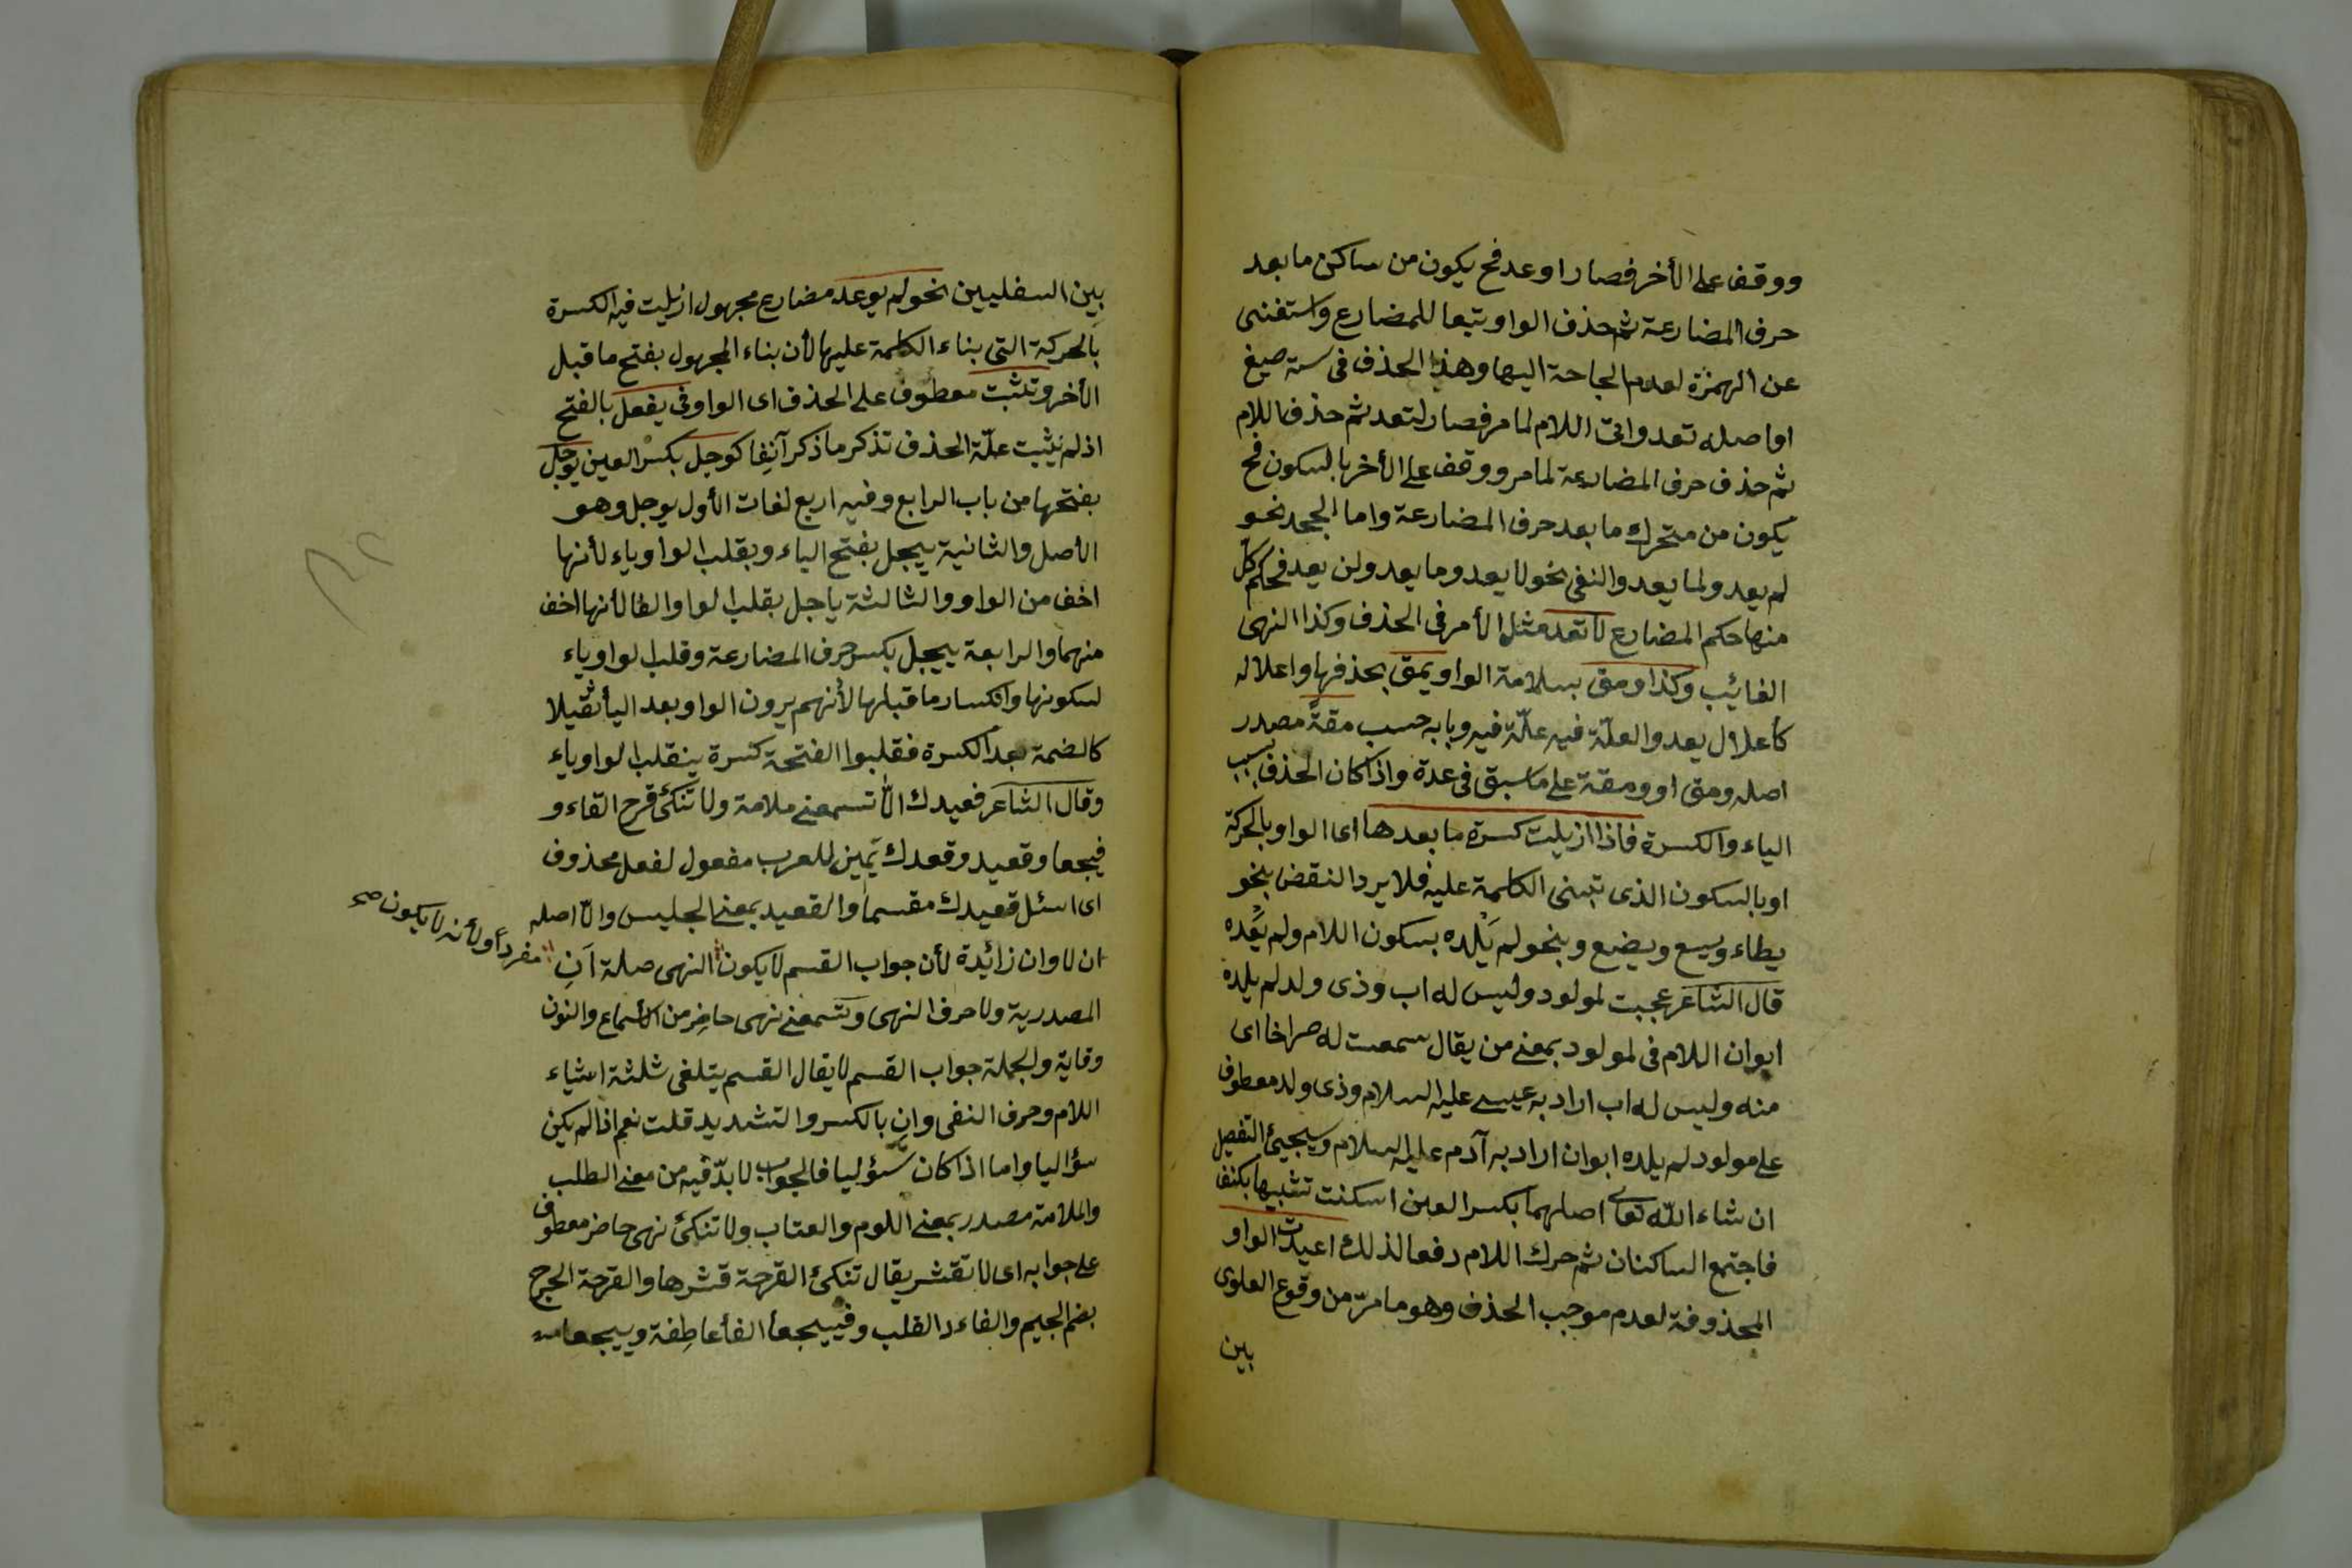 ووقف على الأخر فصار اوعد فح يكون من ساكن ما بعد
حرف المضارعة ثم حذف الواو تبعا للمضارع واستغنى
عن الهمزة لعدم الحاجة اليها وهذا الحذف فى ستة صيغ
او اصله توعد واتى اللام لما مر فصار لتعد ثم حذف اللام
ثم حذف حرف المضارعة لما مر ووقف على الأخر بالسكون فح
يكون من متحرك ما بعد حرف المضارعة واما الجحد نحو
لم يعد ولما يعد والنفى نحو لا يعد وما يعد ولن يعد فحكم كل
منها حكم المضارع لا تعد مثل الأمر فى الحذف وكذا النهى
الغائب وكذا ومق بسلامة الواو يمق بحذفها واعلاله
كأعلال يعد والعلّة فيه علّة فيه وبابه حسب مقةً مصدر
اصله ومق او ومقة على ما سبق فى عدة واذا كان الحذف بسبب
الياء والكسرة فاذا ازيلت كسرة ما بعدها اى الواو بالحركة
او بالسكون الذى تبنى الكلمة عليه فلا يرد النقض بنحو
يطاء ويسع ويضع وبنحو لم يَلْده بسكون اللام ولم يَعْده
قال الشاعر عجبت لمولود وليس له اب وذى ولد لم يلده
ابوان اللام فى لمولود بمعنى من يقال سمعت له صراخا اى
منه وليس له اب اراد به عيسى عليه السلام وذى ولد معطوف
على مولود لم يلده ابوان اراد به آدم عليه السلام وسيجيئ التفصيل
ان شاء الله تعالى اصلهما بكسر العين اسكنت تشبيها بكتف
فاجتمع الساكنان ثم حرك اللام دفعا لذلك اعيدت الواو
المحذوفة لعدم موجب الحذف وهو ما مرّ من وقوع العلوى
بين
بين السفليين نحو لم يوعد مضارع مجهول ازيلت فيه الكسرة
بالحركة التى بناء الكلمة عليها لأن بناء المجهول بفتح ما قبل
الأخر وتثبت معطوف على الحذف اى الواو فى يفعل بالفتح
اذ لم يثبت علّة الحذف تذكر ما ذكر آنفا كوجل بكسر العين يوجل
بفتحها من باب الرابع وفيه اربع لغات الأول يوجل وهو
الأصل والثانية ييجل بفتح الياء وبقلب الواو ياء لأنها
اخف من الواو والثالثة ياجل بقلب الواو الفا لأنها اخف
منهما والرابعة ييجل بكسر حرف المضارعة وقلب الواو ياء
لسكونها وانكسار ما قبلها لأنهم يرون الواو بعد اليأ ثقيلا
كالضمة بعد الكسرة فقلبوا الفتحة كسرة ينقلب الواو ياء
وقال الشاعر فعيدك الاّ تسمعنى ملامة ولا تنكئ قرح القاء و
فيجعا وقعيد وقعدك يمين للعرب مفعول لفعل محذوف
اى اسئل قعيدك مقسما والقعيد بمعنى الجليس والاّ اصله
ان لا وان زائدة لأن جواب القسم لا يكون النهى صلة اَن
مفرداً ولأنه لا يكون صح
المصدرية ولا حرف النهى وتسمعنى نهى حاضر من الأسماع والنون
وقاية والجملة جواب القسم لا يقال القسم يتلقى ثلثة اشياء
اللام وحرف النفى وان بالكسر والتشديد قلت نعم اذا لم يكن
سؤاليا واما اذا كان سؤليا فالجواب لا بدّ فيه من معنى الطلب
والملامة مصدر بمعنى اللوم والعتاب ولا تنكئ نهى حاضر معطوف
على جوابه اى لا تقشر يقال تنكئ القرحة قشرها والقرحة الجرح
بضم الجيم والفاءد القلب وفييجعأ الفأ عاطفة وييجعا